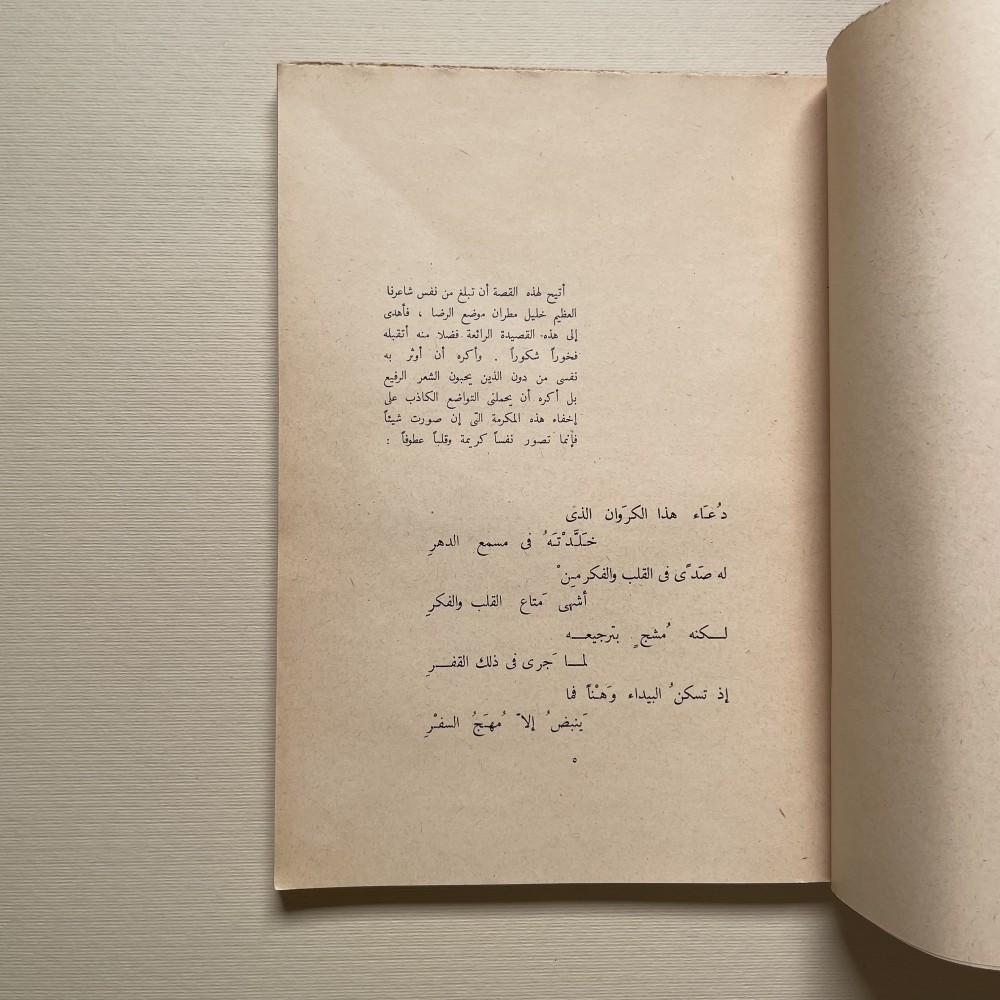 أتيح لهذه القصة أن تبلغ من نفس شاعرنا
العظيم خليل مطران موضع الرضا ، فأهدى
إلى هذه القصيدة الرائعة فضلا منه أتقبله
فخوراً شكوراً . وأكره أن أوثر به
نفسى من دون الذين يحبون الشعر الرفيع
بل أكره أن يحملنى التواضع الكاذب على
إخفاء هذه المكرمة التى إن صورت شيئاً
فإنما تصور نفساً كريمة وقلباً عطوفاً :
دُعَاء هذا الكرَوان الذى
خَلَّدْتَهُ فى مسمع الدهرِ
له صَدًى فى القلب والفكر مِنْ
أشهَى مَتاع القلب والفكرِ
لـكنه مُشجٍ بترجيعـه
لمـا جَرى فى ذلك القفـرِ
إذ تسكنُ البيداء وَهْناً فما
يَنبضُ إلاّ مُهَجُ السفْرِ
٥